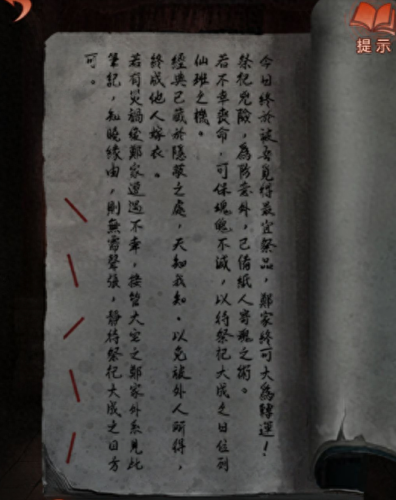 提示
今日終於被吾覓得最宜祭品，鄭家終可大為轉運！
祭祀兇險，為防意外，已備紙人寄魂之術。
若不幸喪命，可保魂魄不滅，以待祭祀大成之日位列
仙班之機。
經典已藏於隱蔽之處，天知我知。以免被外人所得，
終成他人嫁衣。
若有災禍使鄭家遭遇不幸，接管大宅之鄭家外系見此
筆記，知曉緣由，則無需聲張，靜待祭祀大成之日方
可。